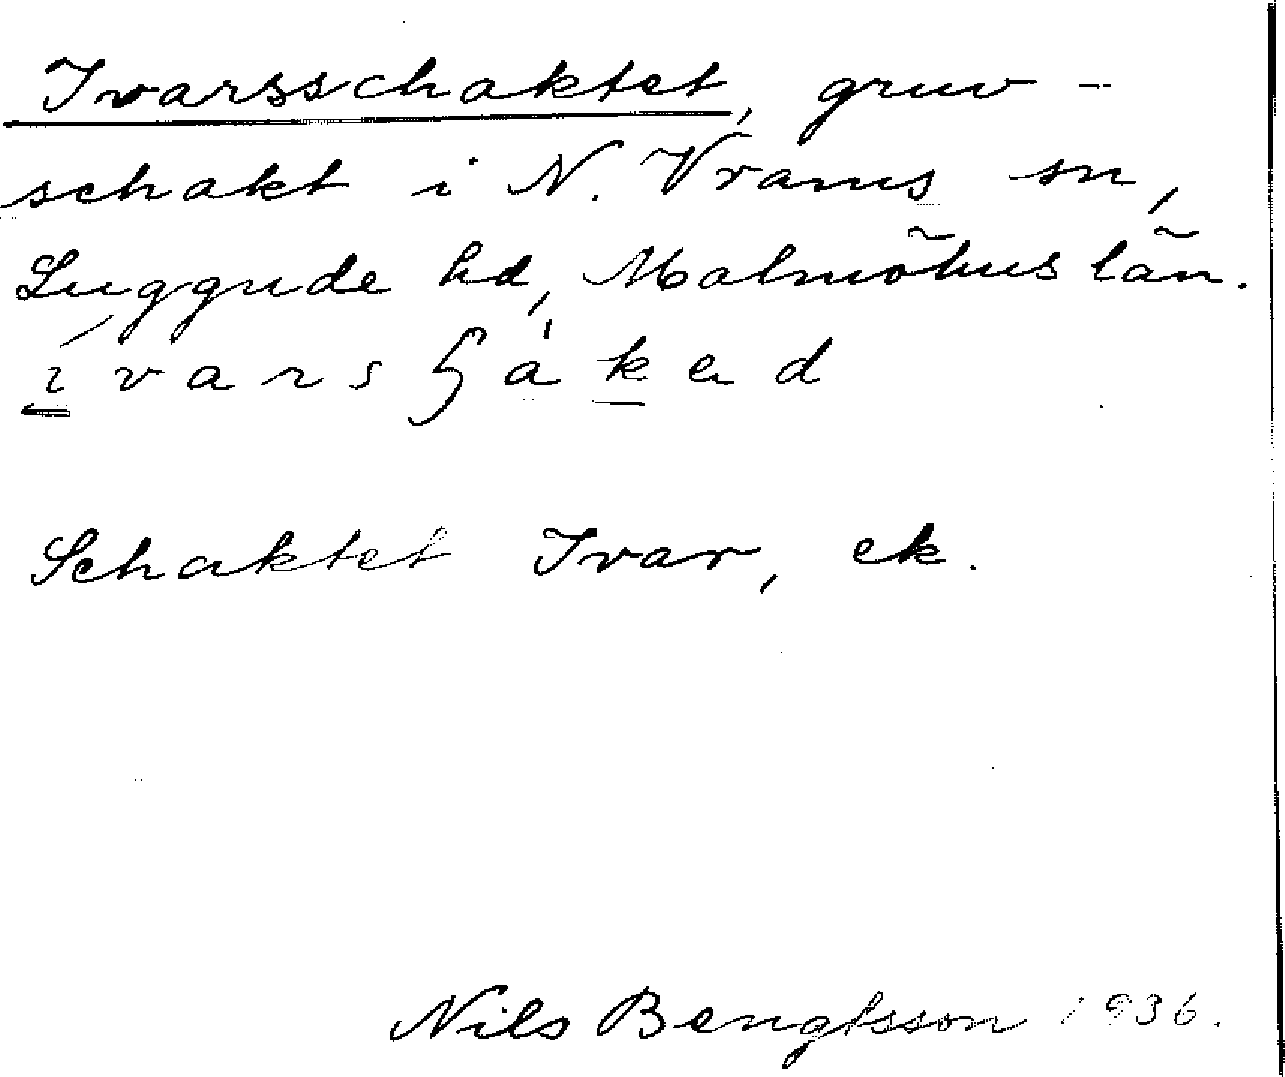 Ivarsschaktet, gruv-
schakt i N. Vrams sn,
Luggude hd, Malmöhus län.
Schaktet Ivar, ek.
Nils Bengtsson 1936.